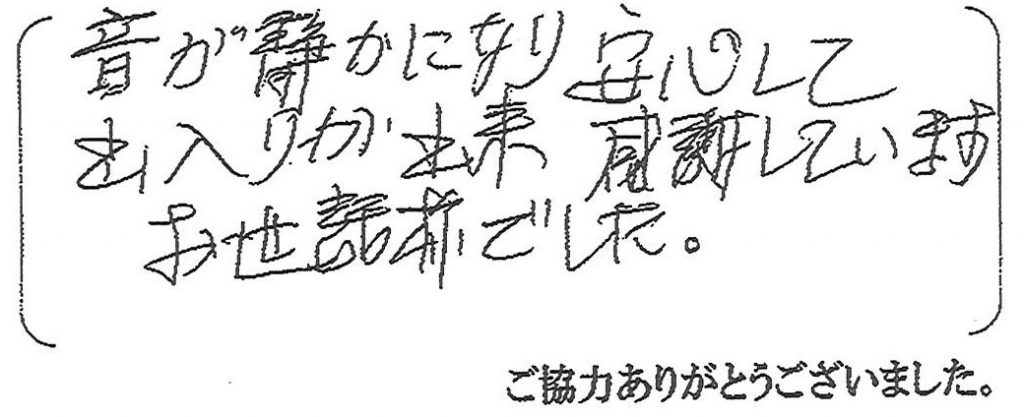 音が静かになり安心して
出入りが出来感謝しています
お世話様でした。
ご協力ありがとうございました。